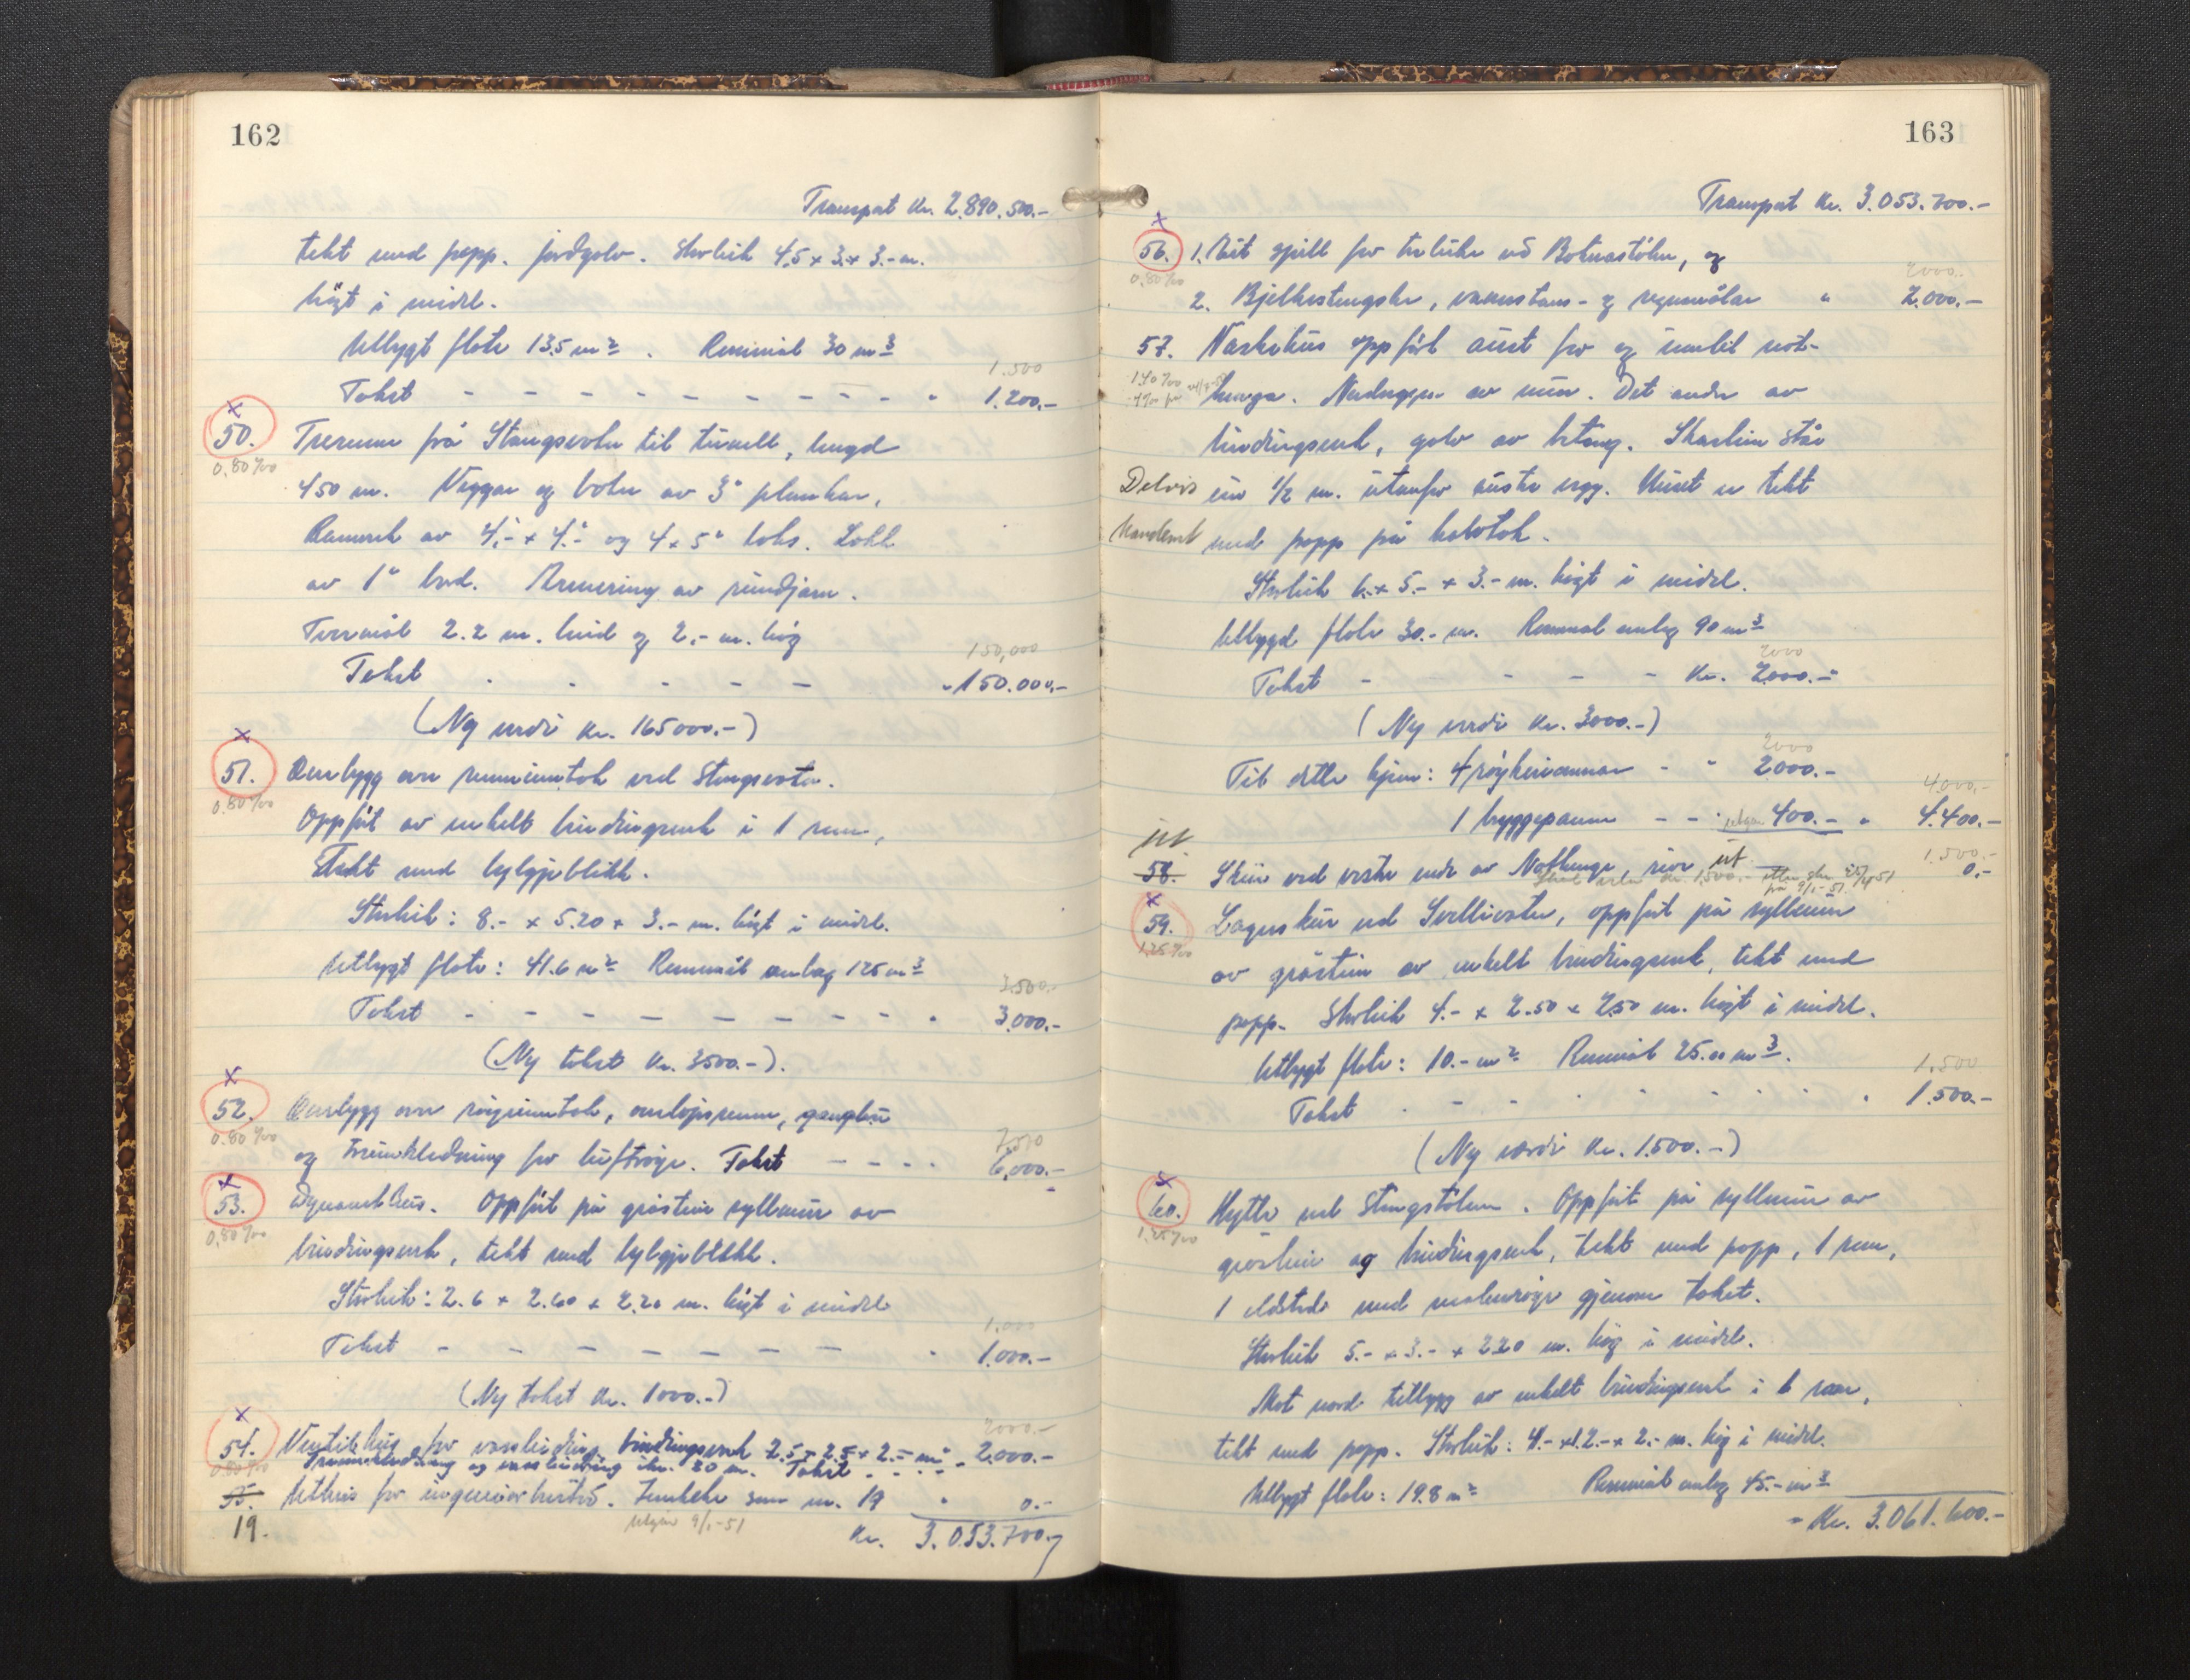 162
Transport kr. 2.890.500.-
tekt med papp. jordgolv. Storleik 4,5 x 3 x 3.- m.
högt i midel.
Utbygt flate 13,5 m². Rummål 30 m³
1.500
Takst - - - - - - - - - - " 1.200.-
x
50. Trerenne frå Stongsvatn til tunell, lengd
0.80 ‰
450 m. Veggar og botn av 3" plankar,
Ramverk av 4.- x 4.- og 4 x 5" toks. Lokk
av 1" bord. Armering av rundjarn.
Tverrmål 2.2 m. breid og 2.- m. høg
150,000
Takst - - - - - " 150.000.-
(Ny verdi kr. 165000.-)
x
51. Overbygg over renneinntak ved Stongsvatn.
0.80 ‰
Oppført av enkelt bindingsverk i 1 rom,
Tekt med bylgjeblikk.
Storleik: 8.- x 5.20 x 3.- m. högt i midel.
Utbygt flate: 41.6 m² Rummål omlag 125 m³
3.500.-
Takst - - - - - - - - - " 3.000.-
(Ny takst kr. 3500.-).
x
52. Overbygg over röyrinntak, omlöpsrenne, gangbru
0.80 ‰
7.500
og treinnkledning for luftröyr. Takst - - - - 6,000.-
x
53. Dynamithus. Oppført på gråstein syllmur av
0,80 ‰
bindingsverk, tekt med bylgjeblikk.
Storleik: 2.6 x 2.60 x 2.20 m. högt i midel
1.000
Takst - - - - - - - " 1.000.-
(Ny takst kr. 1000.-)
x
2000.-
54. Ventilhus for vassleidning bindingsverk 2.5 x 2.5 x 2.- m. " 2.000.-
0.80 ‰
og vassleidning 80 m. Takst - - - -
55. Uthus for ingeniörbustad. Innteke som nr. 19 " 0.-
19.
Utgår 9/1-51
Kr. 3.053.700.-
163
Transport kr. 3.053.700.-
x
56. 1. Eit spill for treluke vd Botnastölen, og
0.80 ‰
2000.-
2. Bjelkestengsle, vannstans- og regnmålar " 2.000.-
57. Vaskehus oppført aust for og innbit not-
1.40 ‰
henga. Nedreggen av mur. Det andre av
bindingsverk, golv av betong. Skorstein står
Delvis ein ½ m. utanfor austre vegg. Huset er tekt
med papp på halvtak.
Storleik 6.- x 5.- x 3.- m. högt i midel.
Utbygd flate 30.- m. Rummål omlag 90 m³
2000
Takst - - - - - kr. 2.000.-
(Ny verdi kr. 3000.-)
2000
Til dette kjem: 4 röykevamnar - " 2000.-
4.000.-
1 bryggepanne - - " 400.- " 4.400.-
ut
1.500.-
58. Skur ved vestre ende av Nothenge, rive ut 0.-
1.500.- 25/4-51
9/1-51
x
59. Lagerskur ved Svellivatn, oppført på syllmur
1.25 ‰
av gråstein av enkelt bindingsverk, tekt med
papp. Storleik 4.- x 2.50 x 2,50 m. högt i midel.
Utbygt flate: 10.- m² Rummål 25.00 m³.
1.500
Takst - - - - - - - " 1.500.-
(Ny verdi kr. 1.500.-)
x
60. Hytte ved Stongstölen. Oppført på syllmur av
1.25 ‰
gråstein og bindingsverk, tekt med papp, 1 rom,
1 eldstad med malmröyr gjenom taket.
Storleik 5.- x 3.- x 2.20 m. hög i midel.
Mot nord tilbygg av enkelt bindingsverk i 1 rom,
tekt med papp. Storleik: 4.- x 1.2.- x 2.- m. hög i midel.
Utbygt flate: 19.8 m² Rummål omlag 45.- m³
Kr. 3.061.600.-